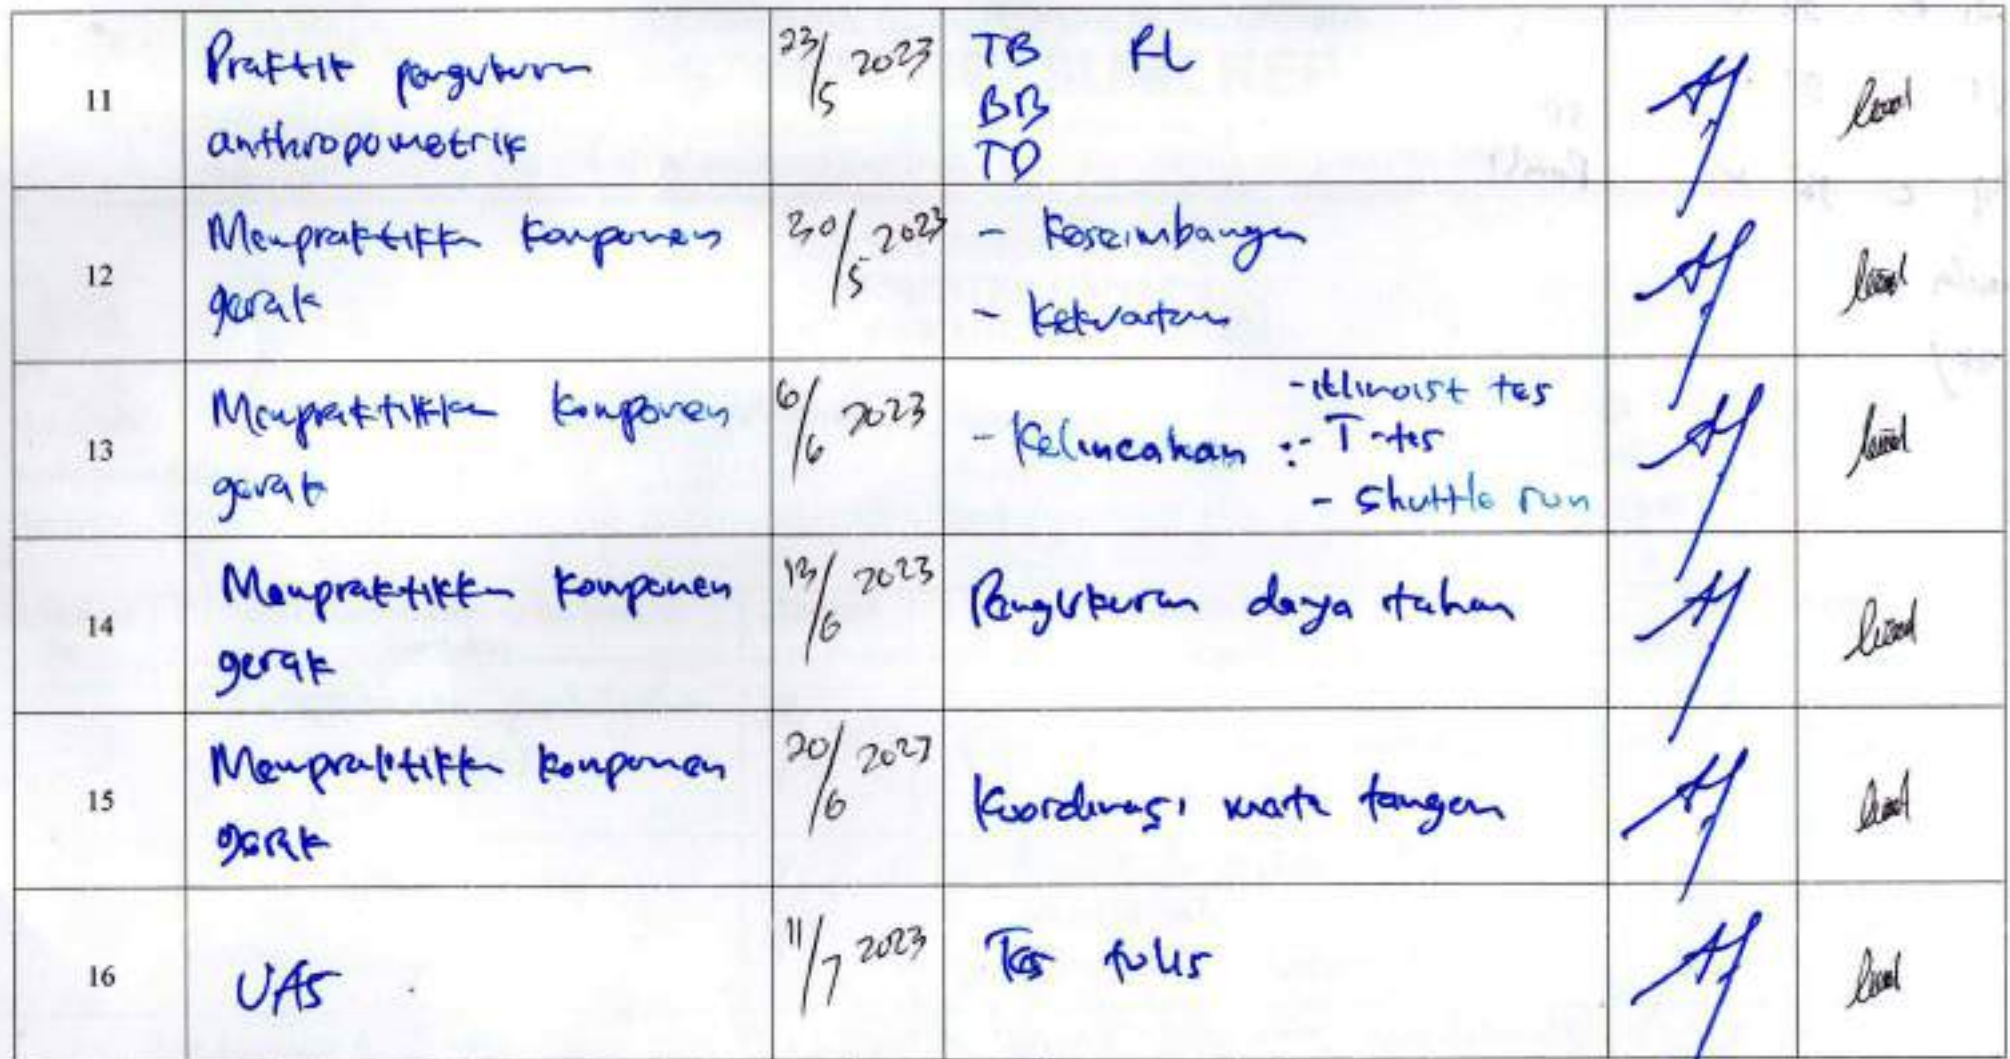 11
Praktik pengukuran
anthropometrik
23/5 2023
TB RL
BB
TD
12
Mempraktikkan komponen
gerak
30/5 2023
- Keseimbangan
- Kekuatan
13
Mempraktikkan komponen
gerak
6/6 2023
- illinoist tes
- Kelincahan : - T-tes
- Shuttle run
14
Mempraktikkan komponen
gerak
13/6 2023
Pengukuran daya tahan
15
Mempraktikkan komponen
gerak
20/6 2023
Koordinasi mata tangan
16
UAS
11/7 2023
Tes tulis